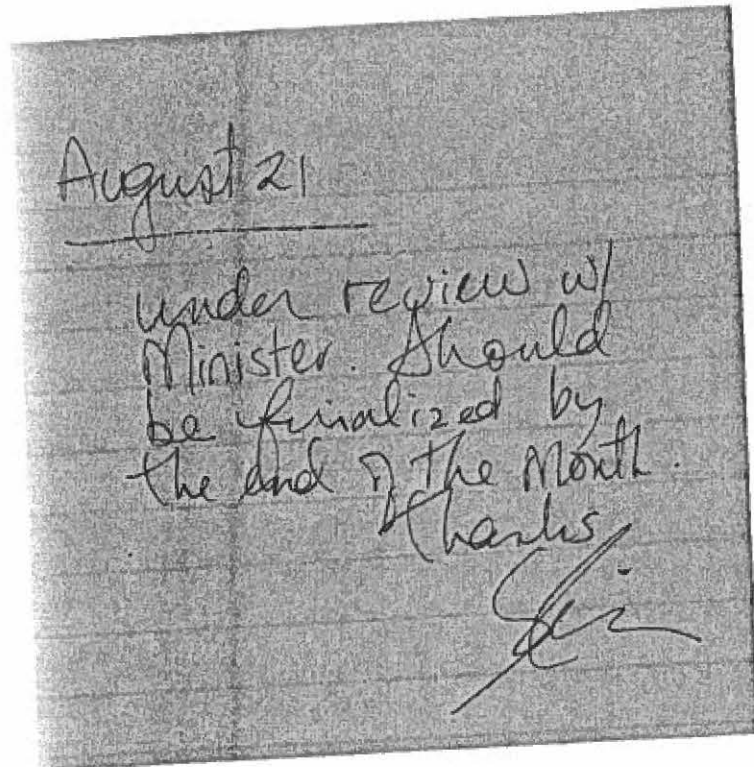 August 21
under review w/
Minister. Should
be finalized by
the end of the Month.
Thanks